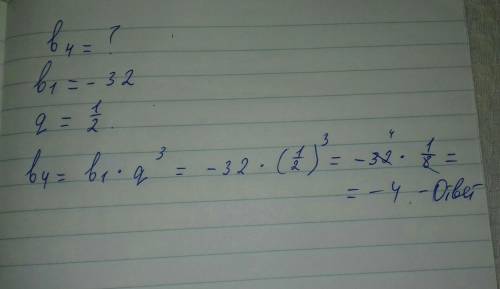 b₄ = ?
b₁ = -32
q = 1/2
b₄ = b₁ · q³ = -32 · (1/2)³ = -32 4 · 1/8 =
= -4 - Ответ